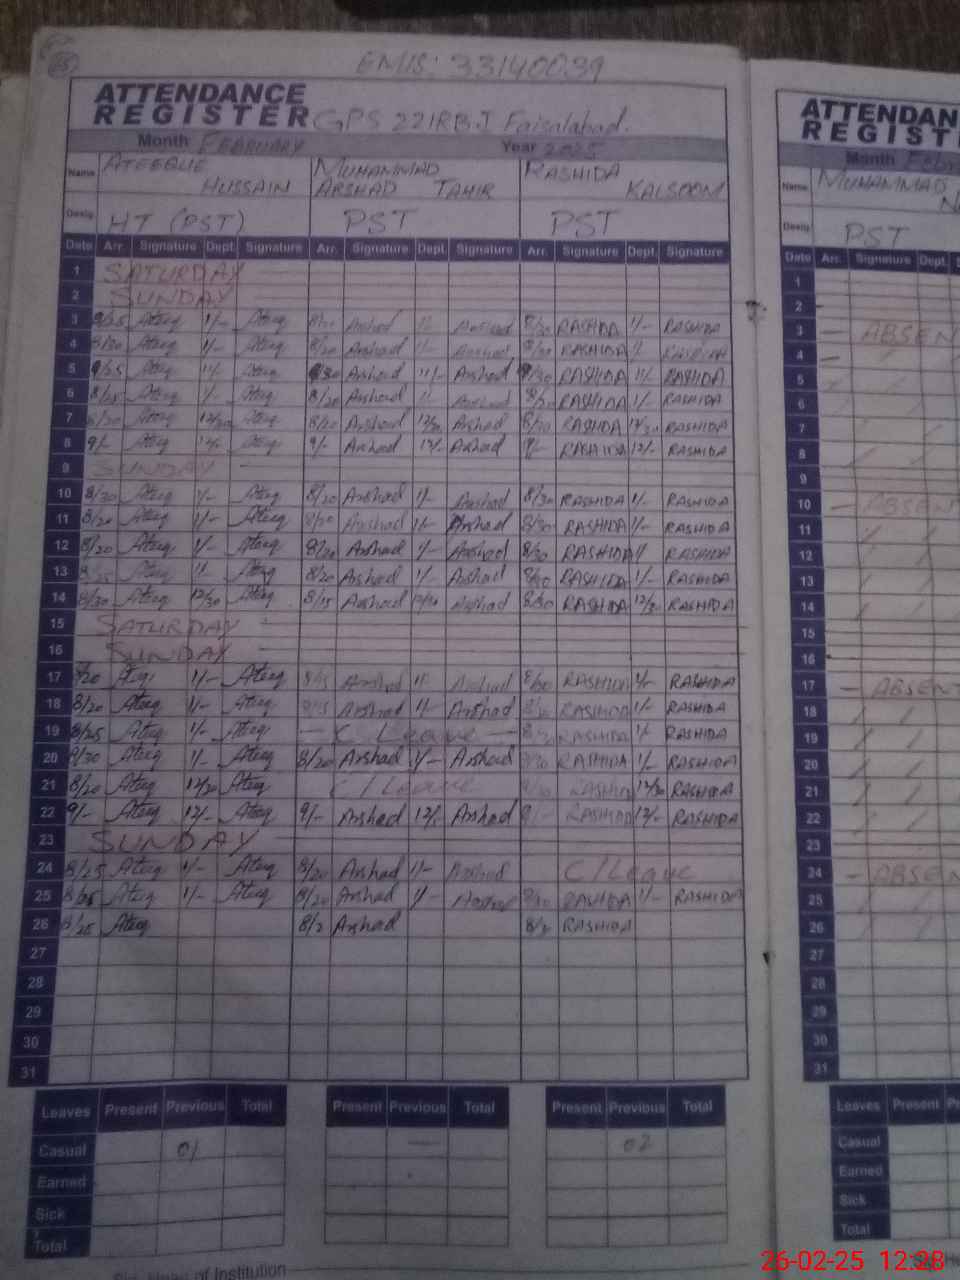 EMIS: 33140039
ATTENDANCE
REGISTER GPS 221RB.J Faisalabad.
Month FEBRUARY Year 2025
Name ATEEQUE HUSSAIN MUHAMMAD ARSHAD TAHIR RASHIDA KALSOOM
Desig. HT (PST) PST PST
Date Arr. Signature Dept. Signature Arr. Signature Dept. Signature Arr. Signature Dept. Signature
1 SATURDAY
2 SUNDAY
3 Ateeq 1/- Ateeq 8/20 Arshad 1/- Arshad 8/30 RASHIDA 1/- RASHIDA
4 8/20 Ateeq 1/- Ateeq 8/20 Arshad 1/- Arshad 8/30 RASHIDA 1/- RASHIDA
5 Ateeq 11/- Ateeq Arshad 11/- Arshad RASHIDA 11/- RASHIDA
6 8/25 Ateeq 1/- Ateeq 8/20 Arshad 1/- Arshad RASHIDA 1/- RASHIDA
7 8/20 Ateeq 12/30 Ateeq 8/20 Arshad 12/30 Arshad RASHIDA 12/30 RASHIDA
8 9/- Ateeq 12/- Ateeq 9/- Arshad 12/- Arshad 9/- RASHIDA 12/- RASHIDA
9 SUNDAY
10 8/30 Ateeq 1/- Ateeq 8/20 Arshad 1/- Arshad 8/30 RASHIDA 1/- RASHIDA
11 8/20 Ateeq 1/- Ateeq 8/20 Arshad 1/- Arshad 8/30 RASHIDA 1/- RASHIDA
12 8/20 Ateeq 1/- Ateeq 8/20 Arshad 1/- Arshad 8/30 RASHIDA 1/- RASHIDA
13 8/25 Ateeq 1/- Ateeq 8/20 Arshad 1/- Arshad RASHIDA 1/- RASHIDA
14 8/30 Ateeq 12/30 Ateeq 8/15 Arshad 12/30 Arshad 8/30 RASHIDA 12/30 RASHIDA
15 SATURDAY
16 SUNDAY
17 Ateeq 1/- Ateeq 8/15 Arshad 1/- Arshad 8/30 RASHIDA 1/- RASHIDA
18 8/20 Ateeq 1/- Ateeq Arshad 1/- Arshad RASHIDA 1/- RASHIDA
19 8/25 Ateeq 1/- Ateeq - C/Leave - RASHIDA 1/- RASHIDA
20 8/30 Ateeq 1/- Ateeq 8/20 Arshad 1/- Arshad RASHIDA 1/- RASHIDA
21 8/20 Ateeq 12/30 Ateeq C/Leave RASHIDA 12/30 RASHIDA
22 9/- Ateeq 12/- Ateeq 9/- Arshad 12/- Arshad 9/- RASHIDA 12/- RASHIDA
23 SUNDAY
24 8/25 Ateeq 1/- Ateeq 8/20 Arshad 1/- Arshad C/Leave
25 8/25 Ateeq 1/- Ateeq 8/20 Arshad 1/- Arshad RASHIDA 1/- RASHIDA
26 8/25 Ateeq 8/2 Arshad 8/2 RASHIDA
27
28
29
30
31
Leaves Present Previous Total Present Previous Total Present Previous Total
Casual 01 — 02
Earned
Sick
Total
of Institution
ATTENDAN
REGIST
Month Febr
Name MUHAMMAD
Desig. PST
Date Arr. Signature Dept. S
1
2
3 - ABSEN
4
5
6
7
8
9
10 - ABSEN
11
12
13
14
15
16
17 - ABSENT
18
19
20
21
22
23
24 - ABSEN
25
26
27
28
29
30
31
Leaves Present Pr
Casual
Earned
Sick
Total
26-02-25 12:28